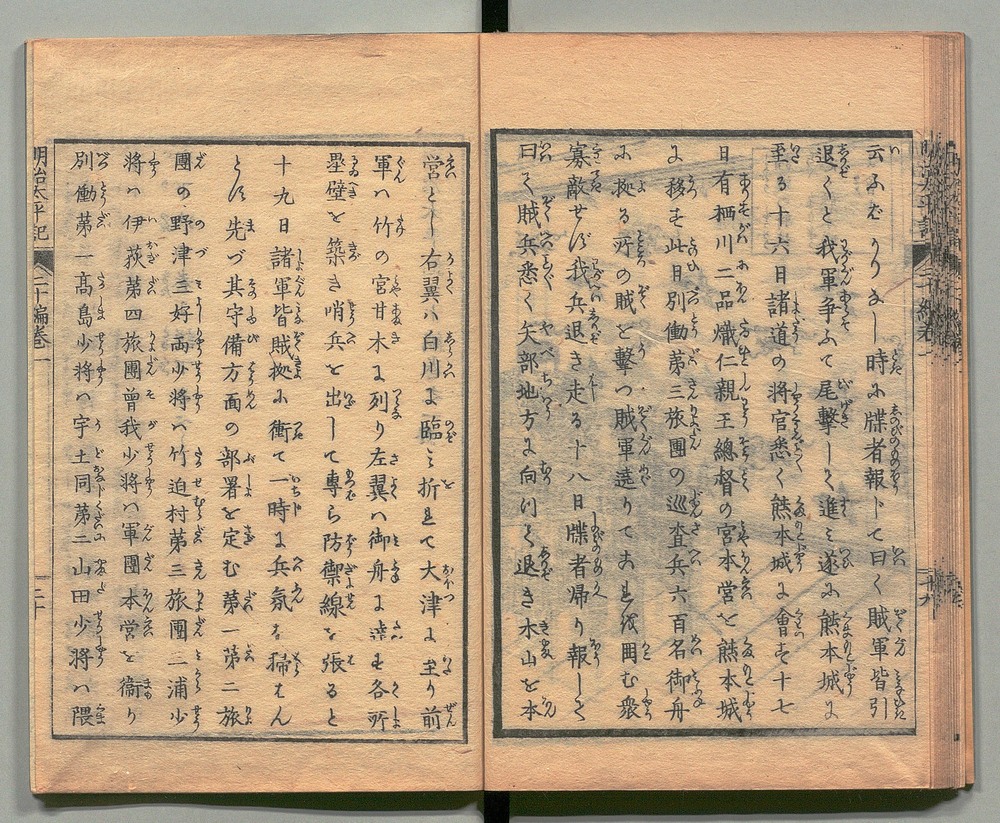 云ふばかりなし時に牒者報じて曰く賊軍皆引
退くと我軍争ふて尾撃しく進み遂に熊本城に
至る十六日諸道の将官悉く熊本城に會す十七
日有栖川二品熾仁親王總督の宮本営を熊本城
に移す此日別働第三旅團の巡査兵六百名御舟
に拠る所の賊を擊つ賊軍遶りてこれを囲む衆
寡敵せず我兵退き走る十八日牒者帰り報じて
曰く賊兵悉く矢部地方に向ひて退き木山を本
営とし右翼ハ白川に臨み折れて大津に至り前
軍ハ竹の宮甘木に列り左翼ハ御舟に達す各所
塁壁を築き哨兵を出して専ら防禦線を張ると
十九日諸軍皆賊拠に衝て一時に兵氛を掃はん
とす先づ其守備方面の部署を定む第一第二旅
團の野津三好両少将ハ竹迫村第三旅團三浦少
將ハ伊荻第四旅團曾我少将ハ軍團本営を衞り
別働第一髙島少将ハ宇土同第二山田少将ハ隈
明治太平記
二十編巻一
二十